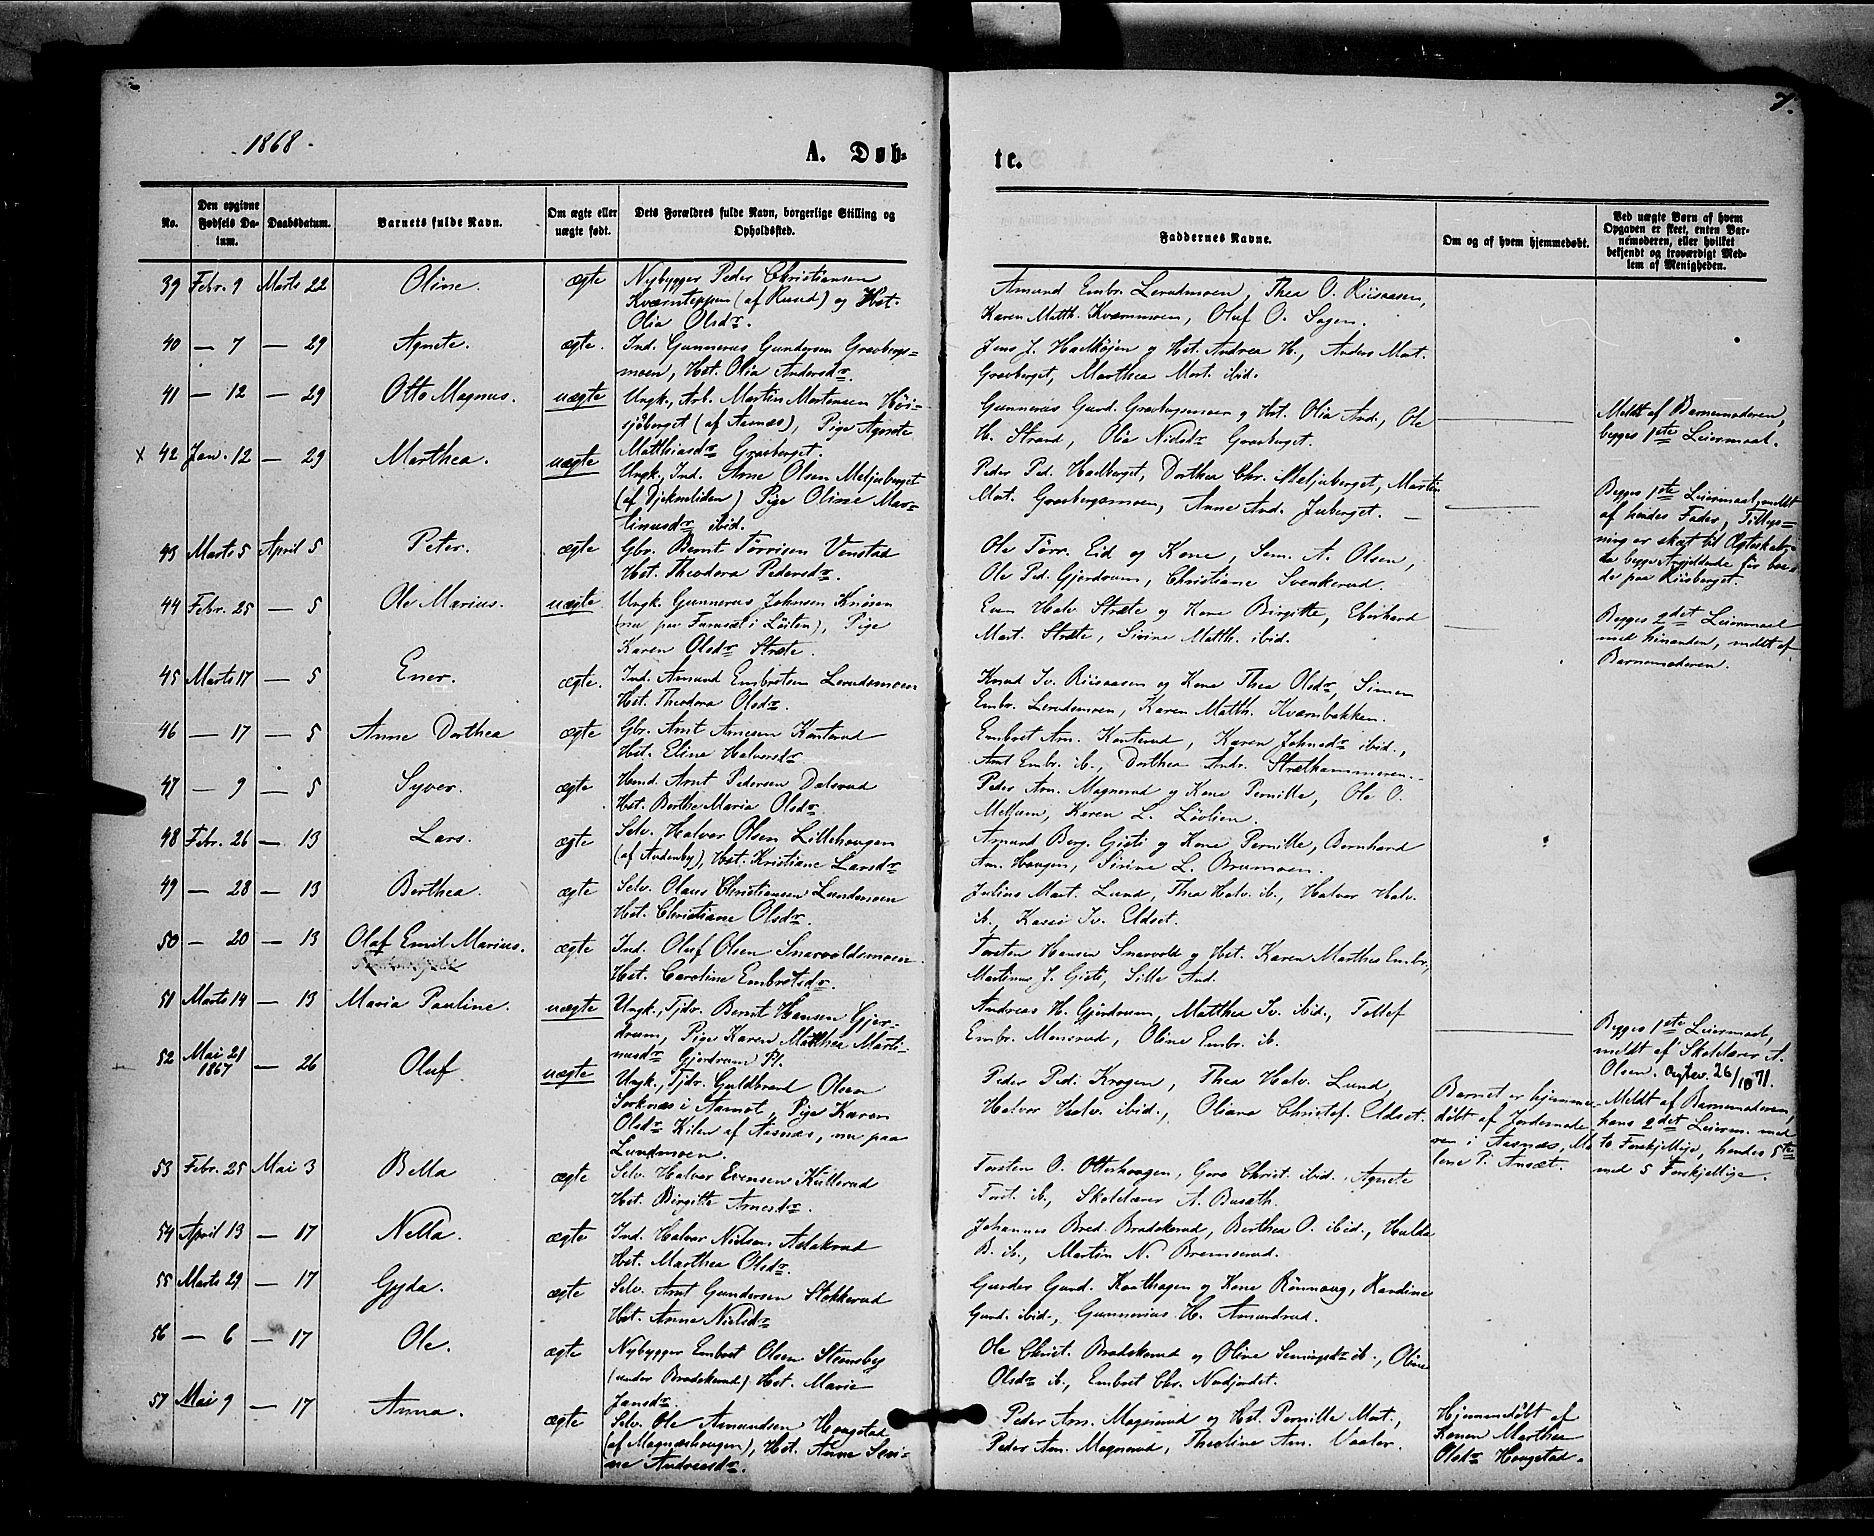 1868.
A. Døb-
te.
7.
No.
Den opgivne Fødsels Da-tum.
Daabsdatum.
Barnets fulde Navn.
Om ægte eller uægte født.
Dets Forældres fulde Navn, borgerlige Stilling og Opholdssted.
Faddernes Navne.
Om og af hvem hjemmedøbt.
Ved uægte Børn af hvem Opgaven er skeet, enten Barnemoderen, eller hvilket bekjendt og troværdigt Medlem af Menigheden.
39 Febr. 9 Marts 22 Oline. ægte Nybygger Peder Christiansen
Kværnteppen (af Ruud) og Hst.
Olia Olsdr.
Amund Embr. Lerudmoen, Thea O. Riisaasen,
Karen Matth. Kværnmoen, Oluf O. Sagen.
40 — 7 — 29 Agnete. ægte. Ind. Gunnerus Gundersen Gravbergs-
moen, Hst. Olia Andersdr.
Jens J. Hadhøjen og Hst. Andrea H., Anders Mart.
Gravberget, Marthea Mort. ibid.
41 — 12 — 29 Otto Magnus. uægte Ungk., Arb. Martin Mortensen Høi-
sjøberget (af Aasnæs), Pige Agnete
Matthiasdr Gravberget.
Gunnerus Gund. Gravbergsmoen og Hst. Olia And., Ole
H. Strand, Olia Nilsdr Gravberget.
Meldt af Barnemoderen,
begges 1ste Leiermaal.
x 42 Jan. 12 — 29 Marthea. uægte
Ungk., Ind. Arne Olsen Meljuberget
(af Djekneliden) Pige Oline Mar-
tinusdr ibid.
Peder Ped. Hadberget, Dorthea Chr. Meljuberget, Martin
Mat. Gravbergsmoen, Anne And. Juberget. —
Begges 1ste Leiermaal, meldt
af hendes Fader, Tillys-
ning er skæt til Ægteskab
da begge Angjeldende for bo-
de paa Riisberget.
43 Marts 5 April 5 Peter. ægte Gbr. Bernt Tørrisen Venstad
Hst. Theodora Pedersdr.
Ole Tørr. Eid og Kone, Sem. A. Olsen,
Ole Ped. Gjerdrum, Christiane Svenkerud.
44 Febr. 25 — 5 Ole Marius. uægte. Ungk. Gunnerus Johnsen Knosen
(nu paa Furnæs i Løiten), Pige
Karen Olsdr Stræte.
Even Halv. Stræte og Kone Birgitte, Eberhard
Mart. Stræte, Sirine Matth. ibid.
Begges 2det Leiermaal
med hinanden, meldt af
Barnemoderen.
45 Marts 17 — 5 Ener. ægte. Ind. Amund Embretsen Lerudsmoen
Hst. Theodora Olsdr.
Knud Iv. Riisaasen og Kone Thea Olsdr, Simen
Embr. Lerudsmoen, Karen Matth. Kværnbakken.
46 — 17 — 5 Anne Dorthea ægte Gbr. Arnt Arnesen Kontrud
Hst. Eline Halvorsdr
Embret Arn. Konterud, Karen Johnsdr ibid.,
Arnt Embr. ib., Dorthea Andr. Stræthammeren.
47 — 9 — 5 Syver. ægte Husmd. Arnt Pedersen Dalsrud
Hst. Berthe Maria Olsdr
Peder Arn. Magnerud og Kone Pernille, Ole O.
Meltum, Karen L. Løvlien.
48 Febr. 26 — 13 Lars. ægte Selv. Halvor Olsen Lillehougen
(af Andenby), Hst. Kristiane Larsdr
Amund Berg. Gjeti og Kone Pernille, Bernhard
Am. Haugen, Sirine L. Brumoen.
49 — 28 — 13 Berthea. ægte Selv. Olaus Christiansen Lundemoen
Hst. Christiane Olsdr.
Julius Mart. Lund, Thea Halv. ib., Halvor Halv.
ib., Kassi Iv. Eldset.
50 — 20 — 13 Olaf Emil Marius. ægte Ind. Oluf Olsen Snarvoldsmoen
Hst. Caroline Embretsdr.
Torsten Hansen Snarvold og Hst. Karen Marthea Embr.,
Martinus J. Gjeti, Sille And.
51 Marts 14 — 13 Maria Pauline. uægte Ungk., Tjdr. Bernt Hansen Gjer-
drum, Pige Karen Matthea Marti-
nusdr Gjerdrum Pl.
Andreas H. Gjerdrum, Matthea Iv. ibid., Tollef
Embr. Monsrud, Oline Embr. ib.
Begges 1ste Leiermaal,
meldt af Skolelærer A.
Olsen. Ægtev. 26/10 71.
52 Mai 21 1867 — 26 Oluf uægte Ungk., Tjdr. Guldbrand Olsen
Sorknæs i Aamot, Pige Karen
Olsdr Kilen af Aasnæs, nu paa
Lundmoen.
Peder Ped. Krogen, Thea Halv. Lund,
Halvor Halv. ibid., Oliana Christof. Eldset.
Barnet er hjemme-
døbt af Jordemode-
ren i Aasnæs, Ma-
lene P. Ansæt.
Meldt af Barnemoderen,
hans 2det Leierm. med
to Forskjellige, hendes 5te
med 5 Forskjellige.
53 Febr. 25 Mai 3 Bella ægte Selv. Halvor Evensen Kullerud
Hst. Birgitte Arnesdr.
Torsten O. Otterhougen, Goro Christ. ibid., Agnete
Torst. ib., Skolelærer A. Busæth.
54 April 13 — 17 Nella. ægte Ind. Halvor Nielsen Aslakrud
Hst. Marthea Olsdr.
Johannes Bred. Bradskerud, Berthea O. ibid., Hulda
B. ib., Martin N. Bremserud.
55 Marts 29 — 17 Gyda. ægte Selv. Arnt Gundersen Stokkerud
Hst. Anne Nielsdr
Gunder Gund. Kaathagen og Kone Rønnaug, Karoline
Gund. ibid., Gunnerius H. Amundrud.
56 — 6 — 17 Ole. ægte Nybygger Embret Olsen Steensby
(under Bradskerud) Hst. Marie
Jansdr
Ole Christ. Bradskerud og Oline Semingsdr ib., Oline
Olsdr ib., Embret Chr. Nordjordet.
57 Mai 9 — 17 Anna. ægte Selv. Ole Amundsen Hougstad
(af Magnushougen), Hst. Anne Siri-
ne Andreasdr.
Peder Arn. Magnerud og Hst. Pernille Mort.,
Peder Am. Magnerud, Theoline Am. Vaaler.
Hjemmedøbt af
Konen Marthea
Olsdr Hougstad.